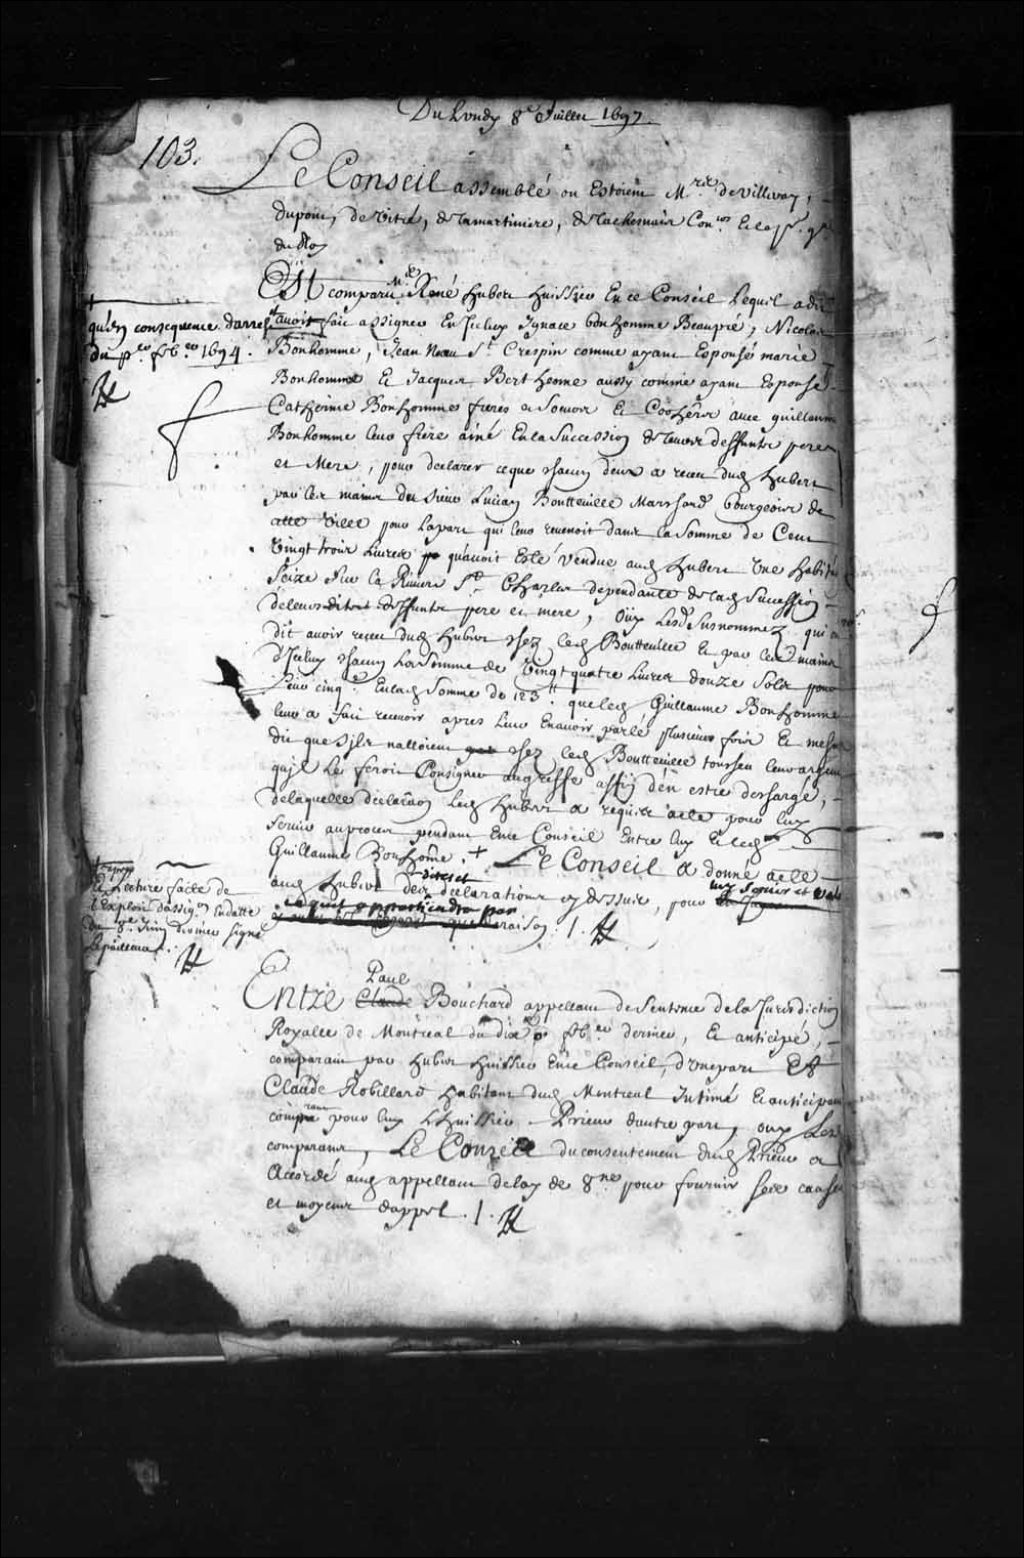 Du Lundy 8e Juillet 1697.
103.
Le Conseil assemblé ou Estoient Mrs de Villeray,
dupont, de Vitré, de Lamartiniere, de Lachesnais Coners Et le pr. gr.
du Roy
Est comparu Me René hubert huissier En ce Conseil Lequel a dit
+
qu'En consequence darrest
du per feber 1694.
avoit fait assigner En Iceluy Ignace bonhomme Beaupré, Nicolas
Bonhomme, Jean Neau St Crespin comme ayant Espousé marie
Bonhomme Et Jacques Bertheome aussy comme ayant Espousé
Catherine Bonhomme freres et Soeurs Et Cooheres avec guillaume
Bonhomme leur frere ainé En la Succession de leurs deffunts pere
et Mere, pour declarer ce que chacun deux a receu dud hubert
par les mains du sieur Lucien Boutteville Marchand bourgeois de
cette Ville pour la part qui leur revenoit dans la Somme de Cent
Vingt trois Livres qu'avoit Esté Vendue aud hubert Une habiton
Seize Sur la Riviere St Charles dependante de lad Succession
de leurs deffunts pere et mere, Oüy Lesd Susnommez qui ont
dit avoir receu dud hubert chez led Boutteville Et par les mains
d'Iceluy chacun La Somme de Vingt quatre Livres douze Sols pour
leur cinqe En lad Somme de 123tt que led Guillaume Bonhomme
leur a fait recevoir apres leur En avoir parlé plusieurs fois Et mesme
dit que S'ils nalloient chez led Boutteville toucher leur argent
quil le feroit Consigner au greffe affin d'en estre deschargé,
de laquelle declaraon Led hubert a requis acte pour luy
Servir au proces pendant En ce Conseil Entre luy Et led
Guillaume Bonhome. + Le Conseil a donné acte
+ apres
Et Lecture faite de
l'Exploit dassigon En datte
du 8e Juin dernier signé
Lepailleur.
aud hubert des dires et declarations cy dessus, pour luy Servir et Val
ce quil appartiendra par
raison. /.
Entre Paul Bouchard appellant de Sentence de la Jurisdiction
Royalle de Montreal du dix feber dernier, Et anticipé,
comparant par hubert huissier En ce Conseil, d'Une part Et
Claude Robillard habitant dud Montreal Intimé Et anticipant
comparant pour luy Lhuissier Prieur dautre part, ouy Les
comparans, Le Conseil du consentement dud Prieur a
Accordé aud appellant delay de 8ne pour fournir ses causes
et moyens dappel. /.